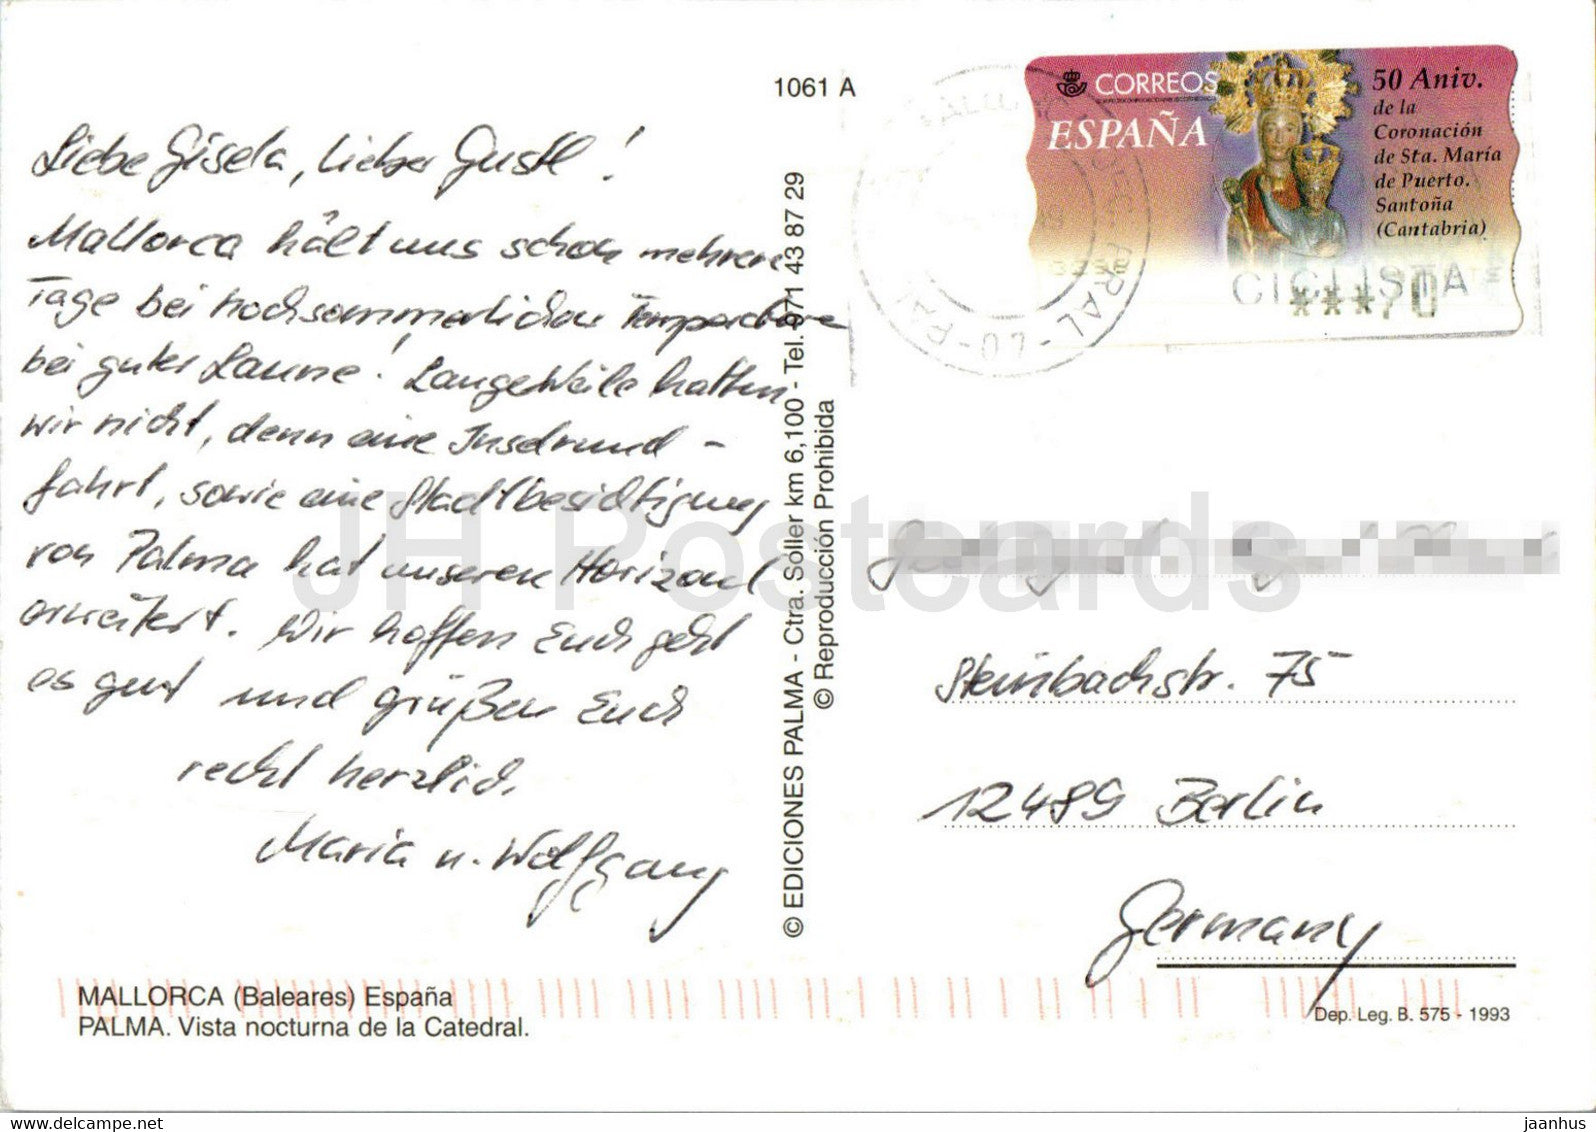 1061 A
Liebe Gisela, lieber Gustl!
Mallorca hält uns schon mehrere
Tage bei hochsommerlichen Temperaturen
bei guter Laune! Langeweile hatten
wir nicht, denn eine Inselrund-
fahrt, sowie eine Stadtbesichtigung
von Palma hat unseren Horizont
erweitert. Wir hoffen Euch geht
es gut und grüßen Euch
recht herzlich.
Maria u. Wolfgang
MALLORCA (Baleares) España
PALMA. Vista nocturna de la Catedral.
© EDICIONES PALMA - Ctra. Sóller km 6,100 - Tel. 971 43 87 29
© Reproducción Prohibida
CORREOS
ESPAÑA
50 Aniv.
de la
Coronación
de Sta. María
de Puerto.
Santoña
(Cantabria)
CICLISTA
***70
Steinbachstr. 75
12489 Berlin
Germany
Dep. Leg. B. 575 - 1993
JH Postcards
www.delcampe.net
jaanhus